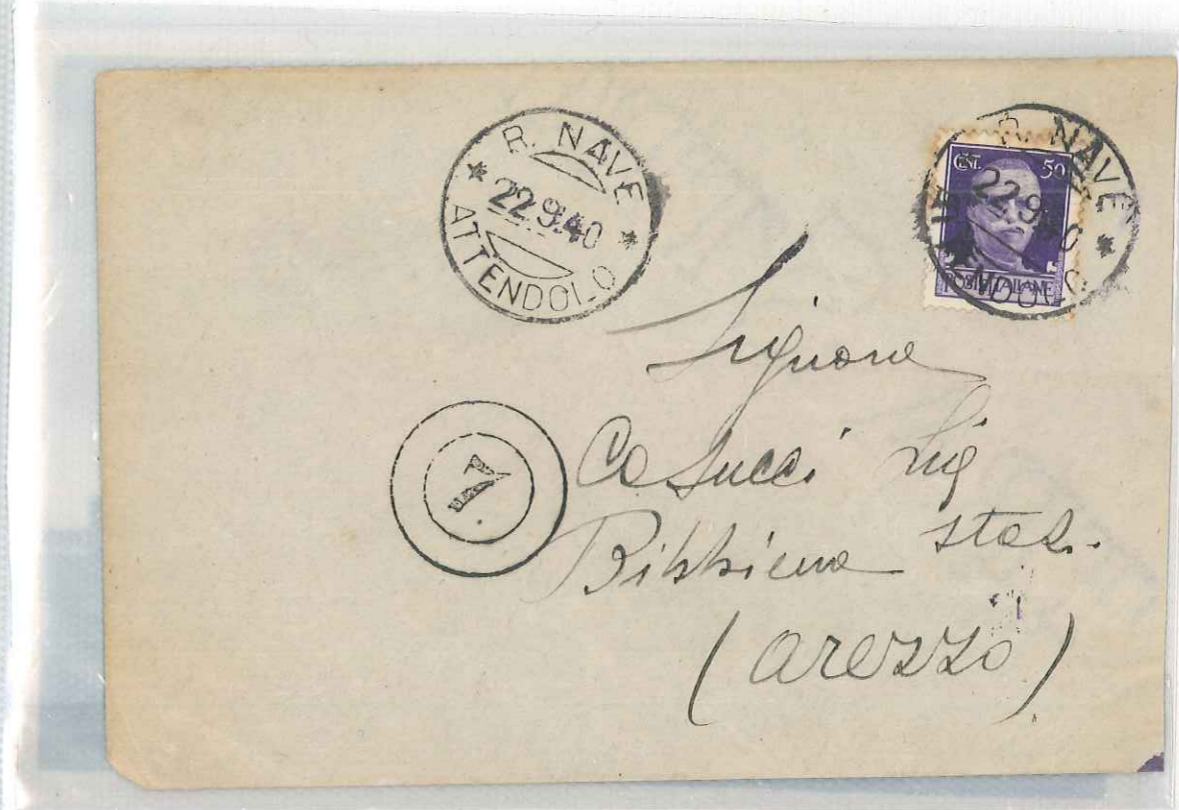 R. NAVE
22.9.40
ATTENDOLO
R. NAVE
22.9.40
ATTENDOLO
CENT. 50
POSTE ITALIANE
7
Signore
Casucci Lig
Bibbiena staz.
(Arezzo)